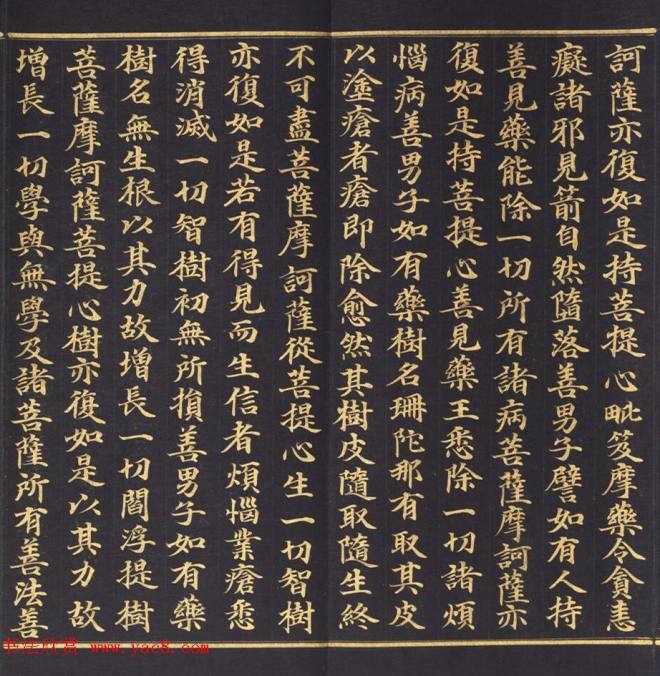 訶薩亦復如是持菩提心毗笈摩藥令貪恚
癡諸邪見箭自然隨落善男子譬如有人持
善見藥能除一切所有諸病菩薩摩訶薩亦
復如是持菩提心善見藥王悉除一切諸煩
惱病善男子如有藥樹名珊陀那有取其皮
以塗瘡者瘡即除愈然其樹皮隨取隨生終
不可盡菩薩摩訶薩從菩提心生一切智樹
亦復如是若有得見而生信者煩惱業瘡悉
得消滅一切智樹初無所損善男子如有藥
樹名無生根以其力故增長一切閻浮提樹
菩薩摩訶薩菩提心樹亦復如是以其力故
增長一切學與無學及諸菩薩所有善法善
书法欣赏 www.yac8.com